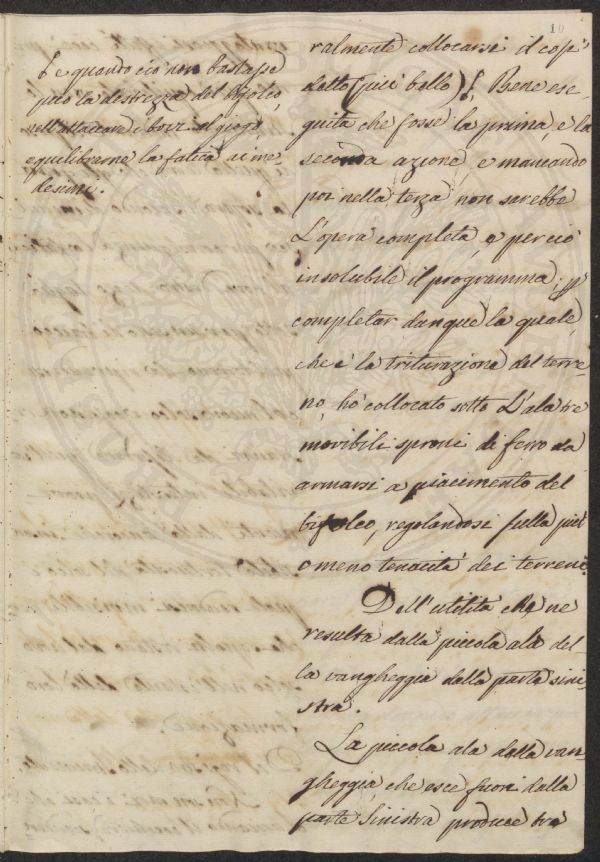 10
E quando ciò non bastasse
può la destrezza del bifolco,
nell'attaccare i bovi al giogo,
equilibrarne la fatica ai me
desimi.
ralmente collocarsi il cosi
detto (più bello). Bene ese
guita che fosse la prima, e la
seconda azione, e mancando
poi nella terza non sarebbe
L'opera completa, e perciò
insolubile il programma; p
completar dunque la quale,
che è la triturazione del terre
no, hò collocato sotto L'ala tre
movibili speroni di ferro da
armarsi a piacimento del
bifolco, regolandosi sulla più
o meno tenacità dei terreni
Dell'utilità che ne
resulta dalla piccola ala del
la vangheggia dalla parte sini
stra.
La piccola ala della van
gheggia che esce fuori dalla
parte Sinistra produce tre